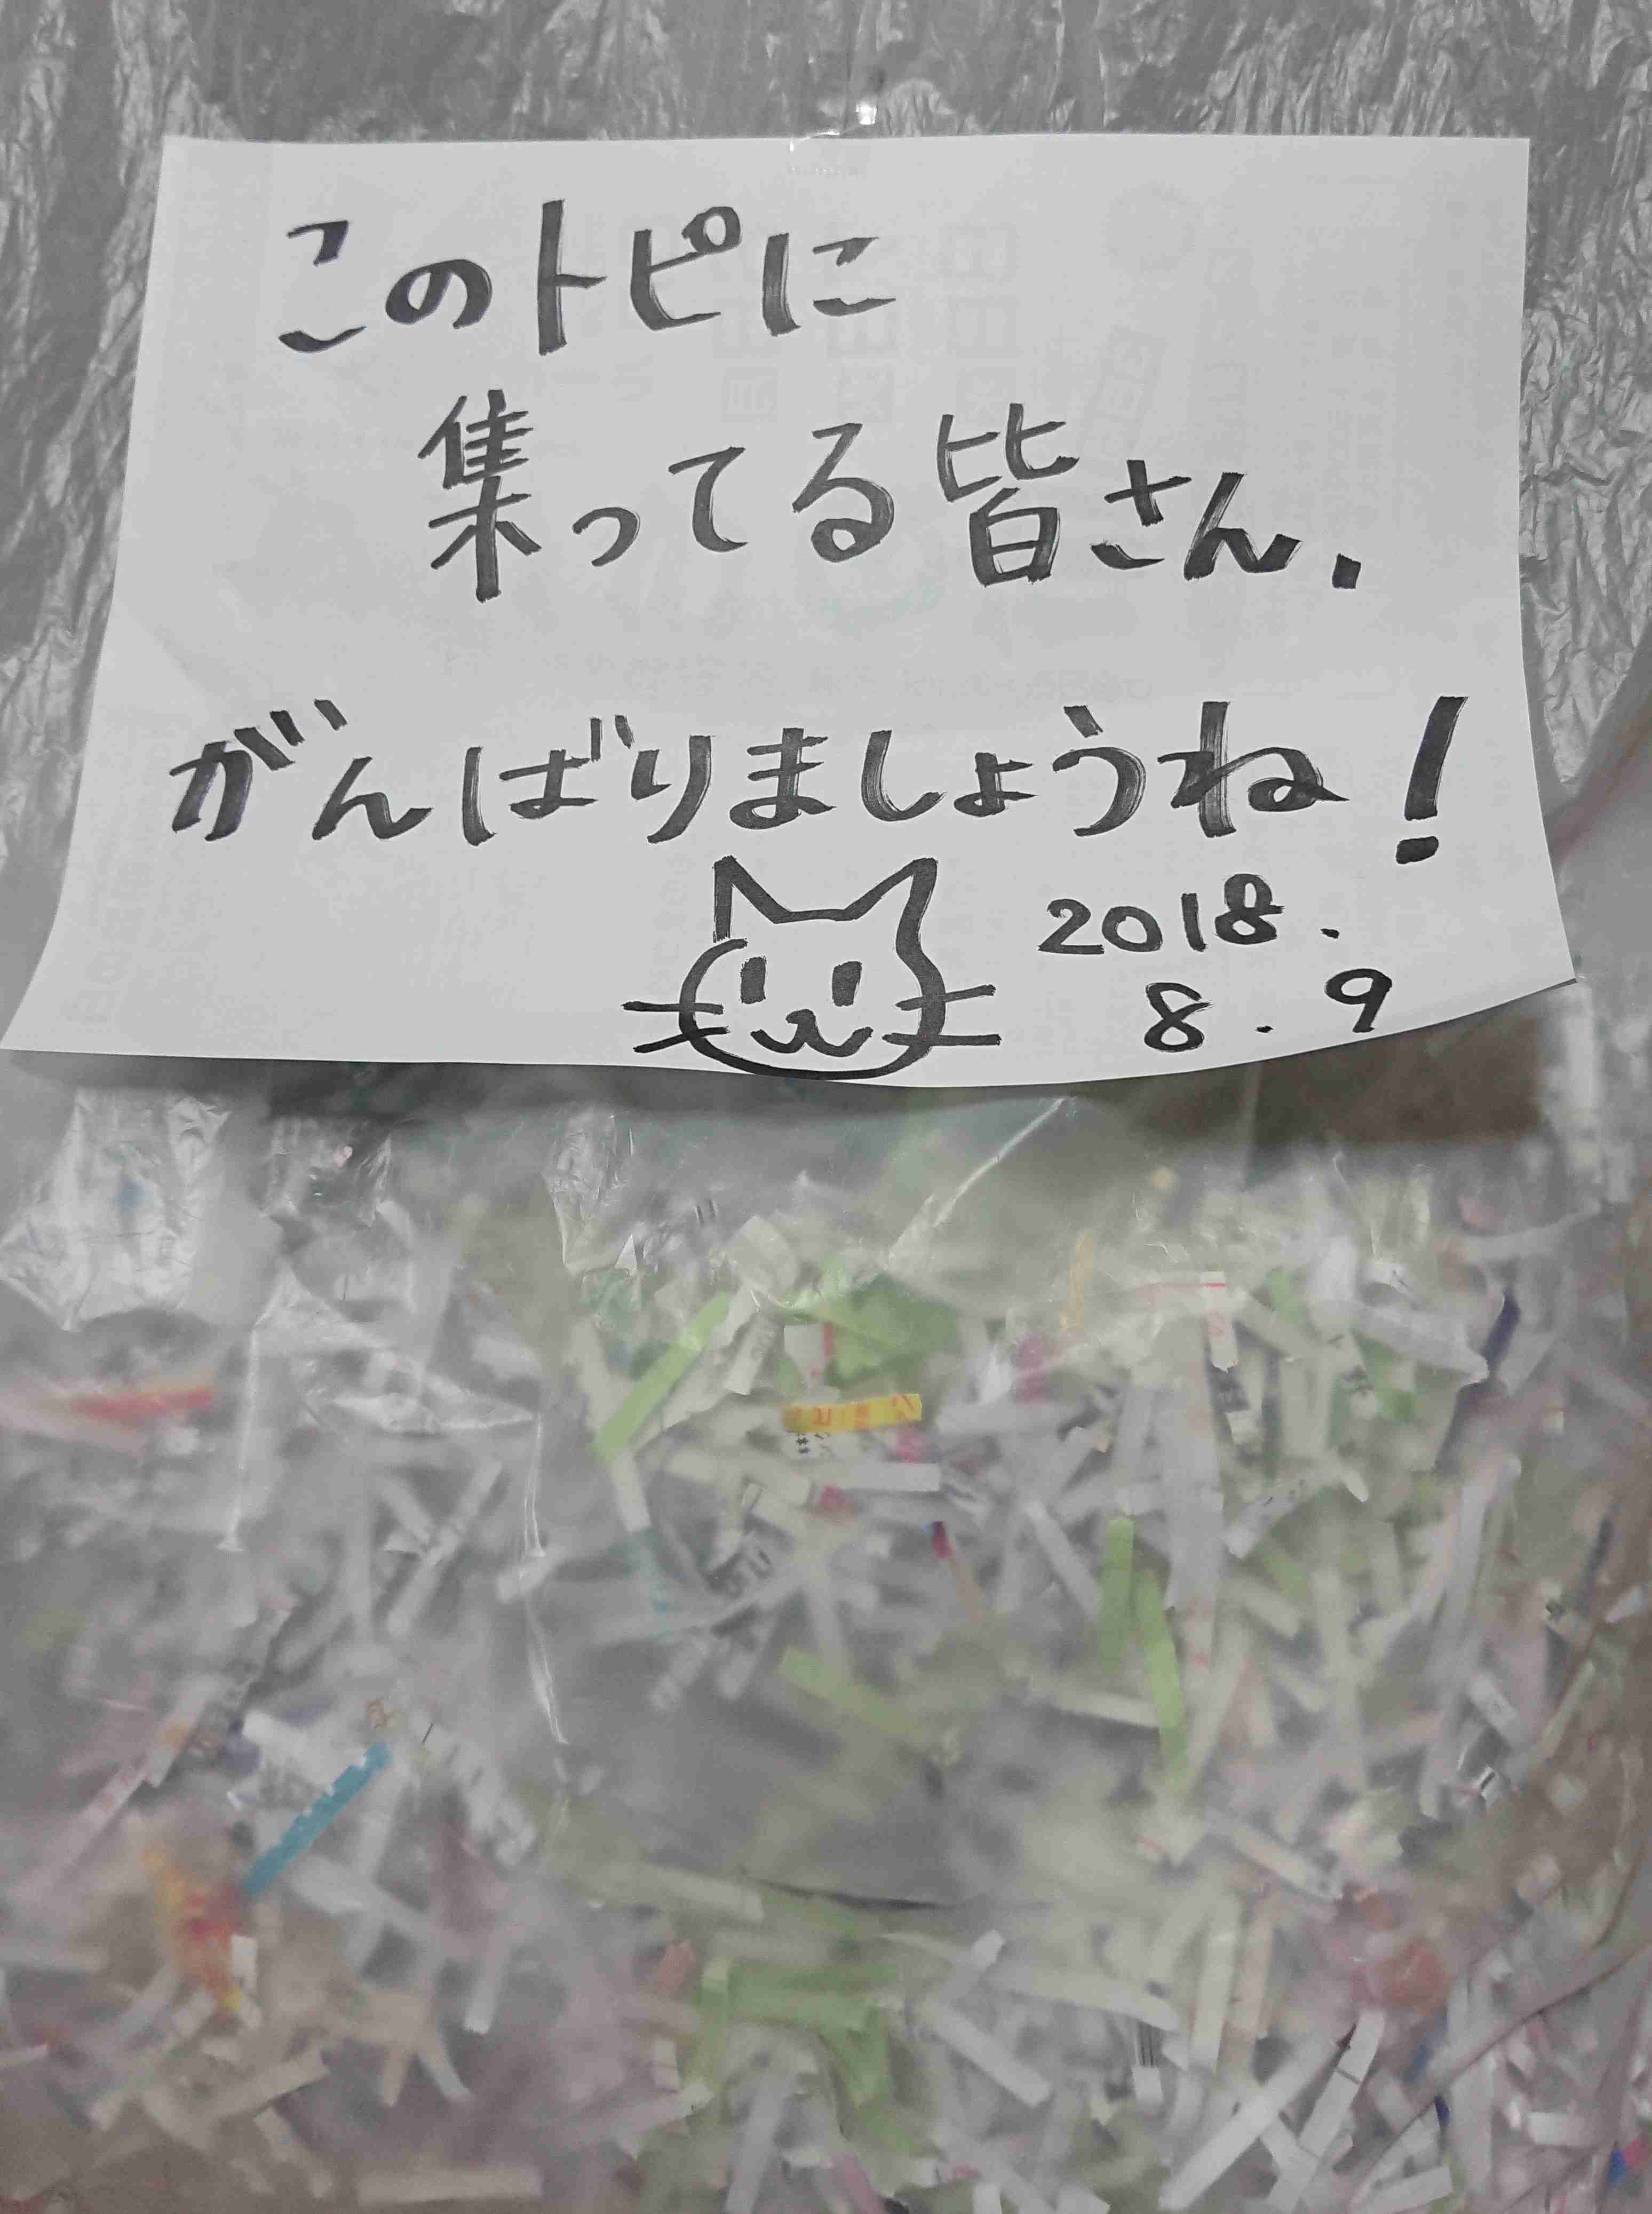 このトピに
集ってる皆さん.
がんばりましょうね!
2018.
8.9